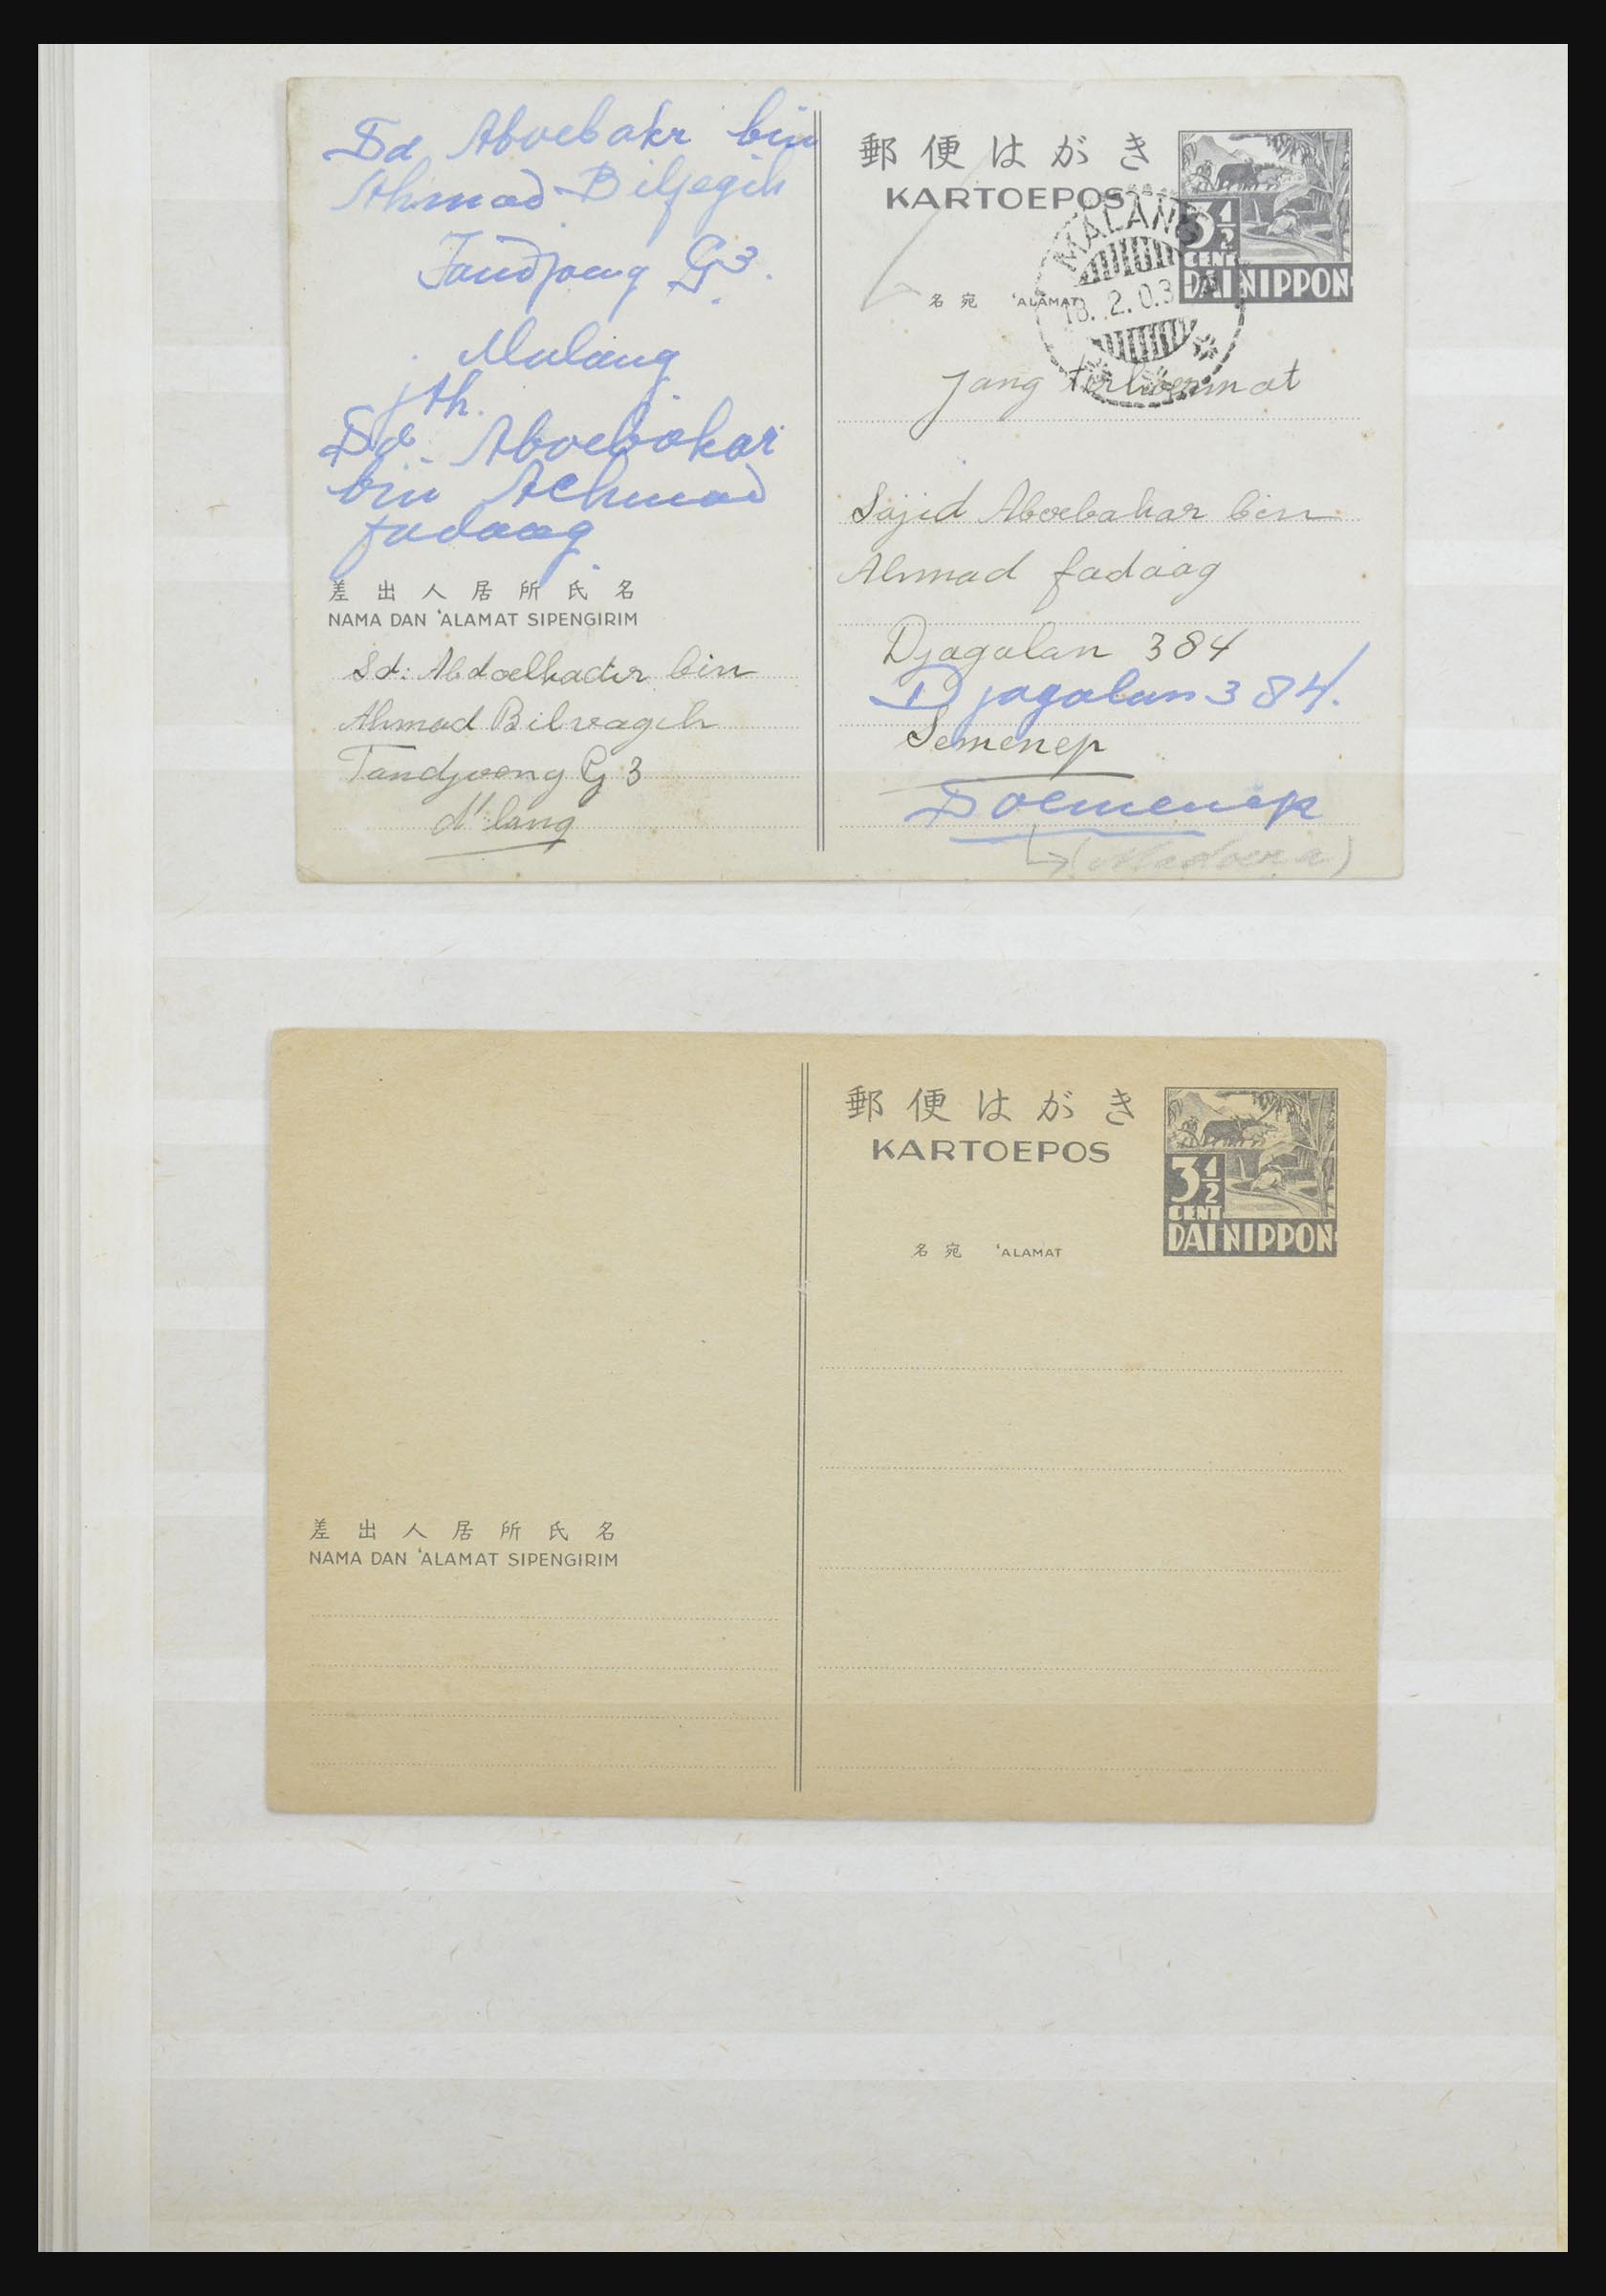 Sd Aboebakr bin
Ahmad Bilfegih
Tandjong G3.
Malang
jth.
Sd. Aboebakar
bin Achmad
fadaag
差出人居所氏名
NAMA DAN 'ALAMAT SIPENGIRIM
Sd: Abdoelkadir bin
Ahmad Bilvagih
Tandjoeng G 3
M'lang
郵便はがき
KARTOEPOS
3 1/2
CENT
DAI NIPPON
MALANG
18. 2. 0.3
名宛 'ALAMAT
Jang terhormat
Sajid Aboebakar bin
Ahmad fadaag
Djagalan 384
Djagalan 384.
Semenep
Soemenep
(Madoera)
郵便はがき
KARTOEPOS
3 1/2
CENT
DAI NIPPON
名宛 'ALAMAT
差出人居所氏名
NAMA DAN 'ALAMAT SIPENGIRIM